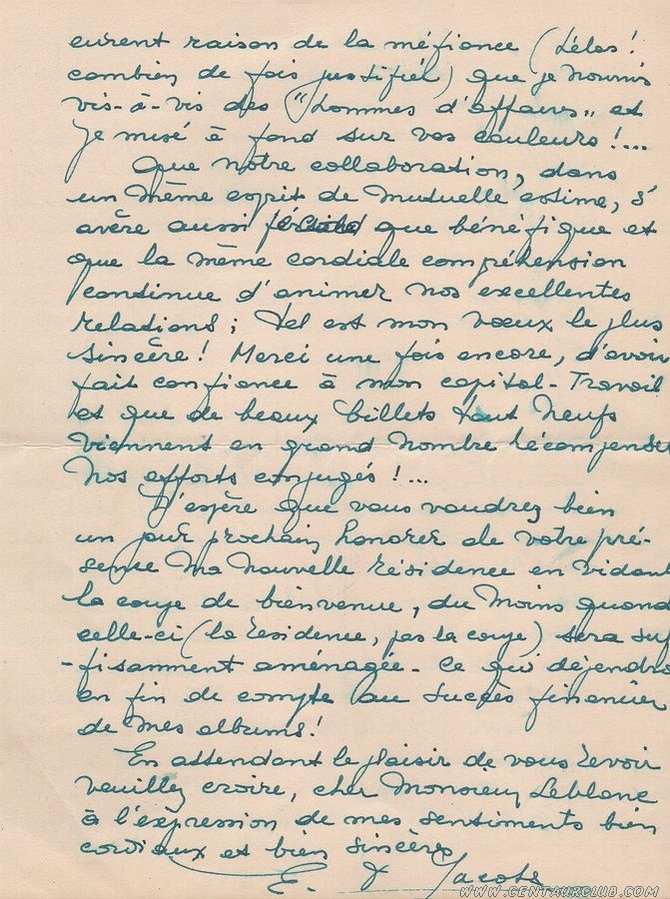 eurent raison de la méfiance (hélas!
combien de fois justifié!) que je nourris
vis-à-vis des "hommes d'affaires" et
je misé à fond sur vos couleurs!...
Que notre collaboration, dans
un même esprit de mutuelle estime, s'
avère aussi que bénéfique et
que la même cordiale compréhension
continue d'animer nos excellentes
relations; tel est mon voeux le plus
sincère! Merci une fois encore, d'avoir
fait confiance à mon capital-Travail
et que de beaux billets tout neufs
viennent en grand nombre récompenser
nos efforts conjugés!...
J'espère que vous voudrez bien
un jour prochain honorer de votre pré-
sence ma nouvelle résidence en vidant
la coupe de bienvenue, du moins quand
celle-ci (la résidence, pas la coupe) sera suf
-fisamment aménagée. Ce qui dépendra
en fin de compte au succès financier
de mes albums!
En attendant le plaisir de vous revoir
veuillez croire, cher Monsieur Leblanc
à l'expression de mes sentiments bien
cordiaux et bien sincères
E. P Jacobs
WWW.CENTAURCLUB.COM